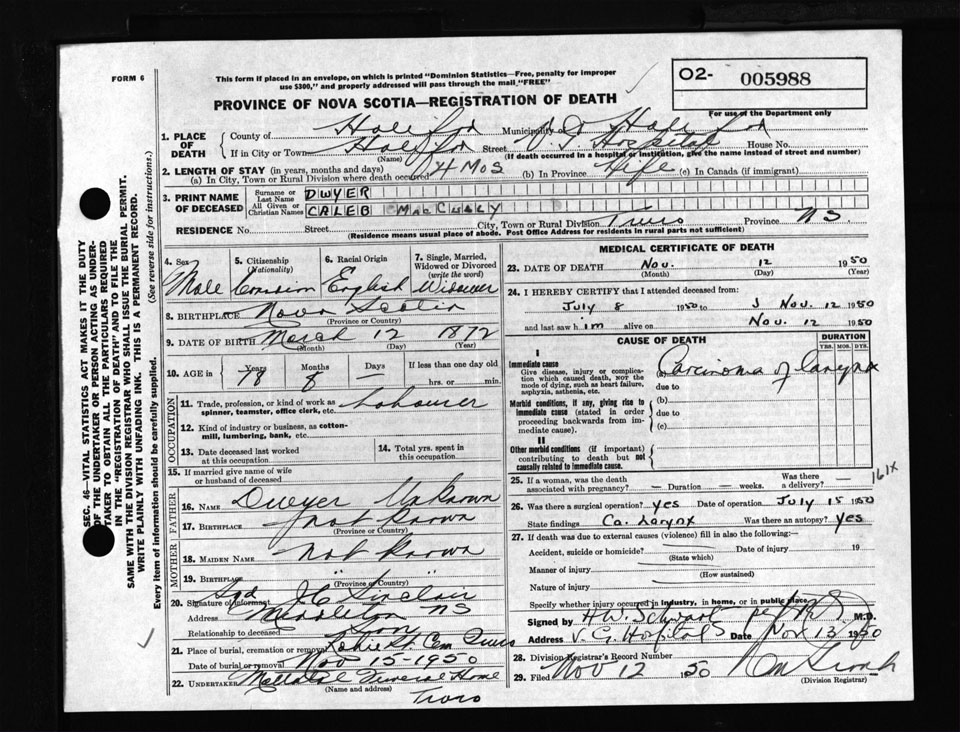 FORM 6
This form if placed in an envelope, on which is printed "Dominion Statistics—Free, penalty for improper
use $300," and properly addressed will pass through the mail "FREE"
O2- 005988
For use of the Department only
PROVINCE OF NOVA SCOTIA—REGISTRATION OF DEATH
1. PLACE OF DEATH
County of Halifax Municipality of
If in City or Town Halifax Street V. G. Hospital House No.
(Name) (If death occurred in a hospital or institution, give the name instead of street and number)
2. LENGTH OF STAY (in years, months and days)
(a) In City, Town or Rural Division where death occurred 4 Mos (b) In Province Life (c) In Canada (if immigrant)
3. PRINT NAME OF DECEASED
Surname or Last Name DWYER
All Given or Christian Names CALEB MacCULLY
RESIDENCE No. Street City, Town or Rural Division Truro Province N.S.
(Residence means usual place of abode. Post Office Address for residents in rural parts not sufficient)
4. Sex 5. Citizenship (Nationality) 6. Racial Origin 7. Single, Married, Widowed or Divorced (write the word)
Male Canadian English Widower
8. BIRTHPLACE Nova Scotia
(Province or Country)
9. DATE OF BIRTH March 12 1872
(Month) (Day) (Year)
10. AGE in Years Months Days If less than one day old
78 8 hrs. or min.
OCCUPATION
11. Trade, profession, or kind of work as spinner, teamster, office clerk, etc. Labourer
12. Kind of industry or business, as cotton-mill, lumbering, bank, etc.
13. Date deceased last worked at this occupation
14. Total yrs. spent in this occupation
15. If married give name of wife or husband of deceased
FATHER
16. NAME Dwyer Unknown
17. BIRTHPLACE not known
(Province or Country)
MOTHER
18. MAIDEN NAME Not known
19. BIRTHPLACE " "
(Province or Country)
20. Signature of informant Sgd J C Sinclair
Address Middleton NS
Relationship to deceased
21. Place of burial, cremation or removal Robie St. Cem Truro
Date of burial or removal Nov 15-1950
22. UNDERTAKER Funeral Home
(Name and address) Truro
MEDICAL CERTIFICATE OF DEATH
23. DATE OF DEATH Nov. 12 1950
(Month) (Day) (Year)
24. I HEREBY CERTIFY that I attended deceased from:
July 8 1950 to Nov. 12 1950
and last saw him alive on Nov. 12 1950
CAUSE OF DEATH
DURATION
YRS. MOS. DYS.
I
Immediate cause
Give disease, injury or complication which caused death, NOT the mode of dying, such as heart failure, asphyxia, asthenia, etc.
Carcinoma of larynx
due to
(b)
Morbid conditions, if any, giving rise to immediate cause (stated in order proceeding backwards from immediate cause).
due to
(c)
II
Other morbid conditions (if important) contributing to death but not causally related to immediate cause.
25. If a woman, was the death associated with pregnancy? — Duration — weeks. Was there a delivery? —
161X
26. Was there a surgical operation? yes Date of operation July 15 1950
State findings Ca. larynx Was there an autopsy? yes
27. If death was due to external causes (violence) fill in also the following:
Accident, suicide or homicide? Date of injury 19
(State which)
Manner of injury
(How sustained)
Nature of injury
Specify whether injury occurred in industry, in home, or in public place
Signed by H.W. Schwartz per M.D.
Address V. G. Hospital Date Nov 13 1950
28. Division Registrar's Record Number
29. Filed Nov 12 50
(Division Registrar)
SEC. 46—VITAL STATISTICS ACT MAKES IT THE DUTY
OF THE UNDERTAKER OR PERSON ACTING AS UNDER-
TAKER TO OBTAIN ALL THE PARTICULARS REQUIRED
IN THE "REGISTRATION OF DEATH" AND TO FILE THE
SAME WITH THE DIVISION REGISTRAR WHO SHALL ISSUE THE BURIAL PERMIT.
WRITE PLAINLY WITH UNFADING INK. THIS IS A PERMANENT RECORD.
Every item of information should be carefully supplied. (See reverse side for instructions.)